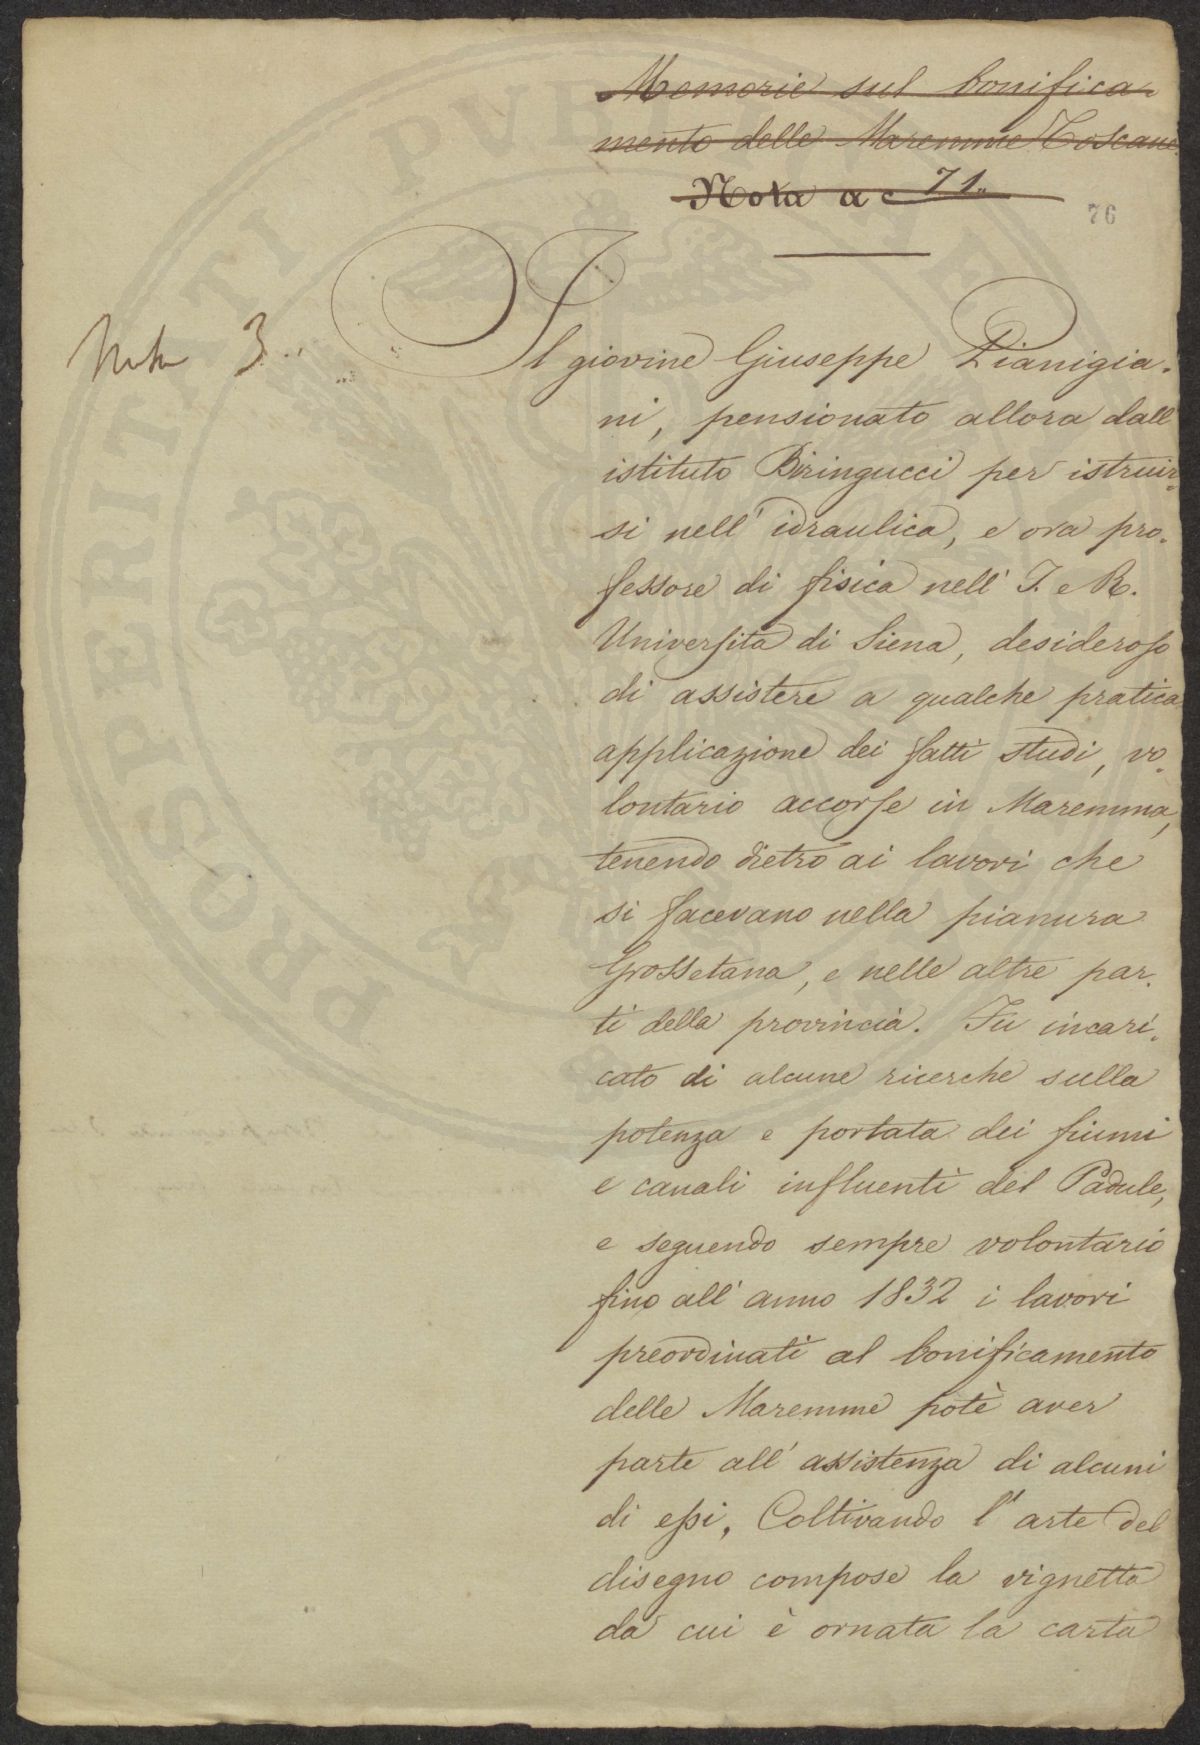 Memorie sul bonifica-
mento delle Maremme Toscane.
Nota a c 71.
76
Nota 3.
Il giovine Giuseppe Pianigia-
ni, pensionato allora dall'
istituto Biringucci per istruir-
si nell' idraulica, e ora pro-
fessore di fisica nell' I. e R.
Università di Siena, desideroso
di assistere a qualche pratica
applicazione dei fatti studi, vo-
lontario accorse in Maremma,
tenendo dietro ai lavori che
si facevano nella pianura
Grossetana, e nelle altre par-
ti della provincia. Fu incari-
cato di alcune ricerche sulla
potenza e portata dei fiumi
e canali influenti del Padule,
e seguendo sempre volontario
fino all' anno 1832 i lavori
preordinati al bonificamento
delle Maremme potè aver
parte all' assistenza di alcuni
di essi. Coltivando l' arte del
disegno compose la vignetta
da cui è ornata la carta
PROSPERITATI PUBLICAE